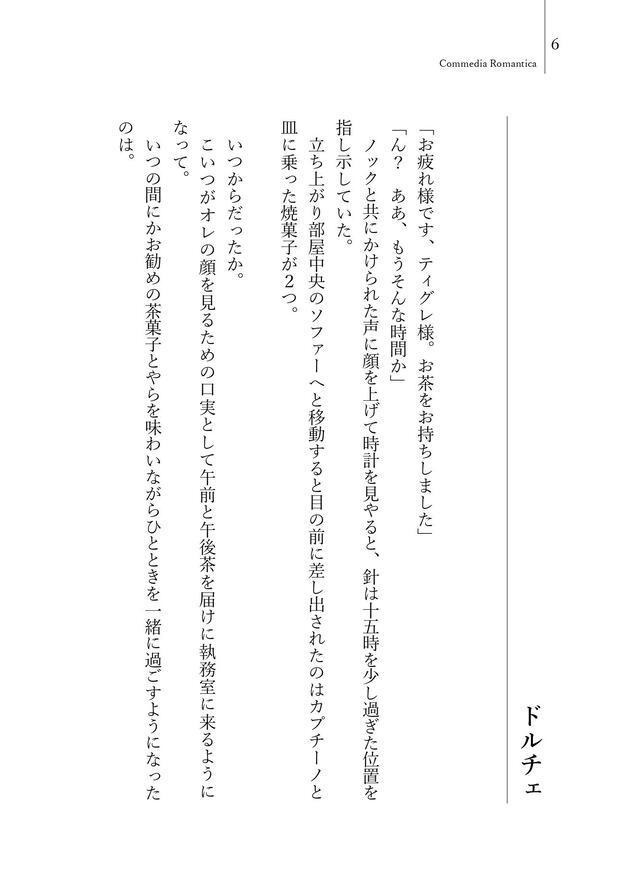 6
Commedia Romantica
ドルチェ
「お疲れ様です、ティグレ様。お茶をお持ちしました」
「ん？　ああ、もうそんな時間か」
　ノックと共にかけられた声に顔を上げて時計を見やると、針は十五時を少し過ぎた位置を
指し示していた。
　立ち上がり部屋中央のソファーへと移動すると目の前に差し出されたのはカプチーノと
皿に乗った焼菓子が２つ。
　いつからだったか。
　こいつがオレの顔を見るための口実として午前と午後茶を届けに執務室に来るように
なって。
　いつの間にかお勧めの茶菓子とやらを味わいながらひとときを一緒に過ごすようになった
のは。